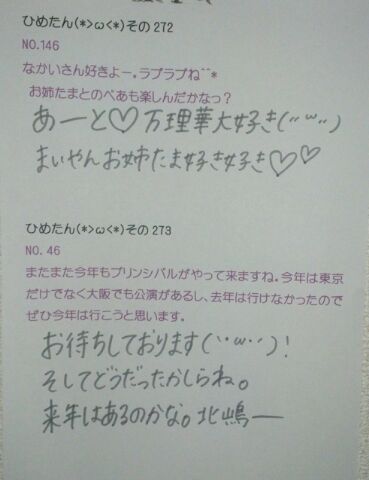 ひめたん(*>ω<*)その272
NO.146
なかいさん好きよー。ラブラブね^^*
お姉たまとのぺあも楽しんだかなっ?
あーと♡万理華大好き(¨ω¨)
まいやんお姉たま好き好き♡♡
ひめたん(*>ω<*)その273
NO.46
またまた今年もプリンシパルがやって来ますね。今年は東京
だけでなく大阪でも公演があるし、去年は行けなかったので
ぜひ今年は行こうと思います。
お待ちしております(¨ω¨)!
そしてどうだったかしらね。
来年はあるのかな。北嶋ー